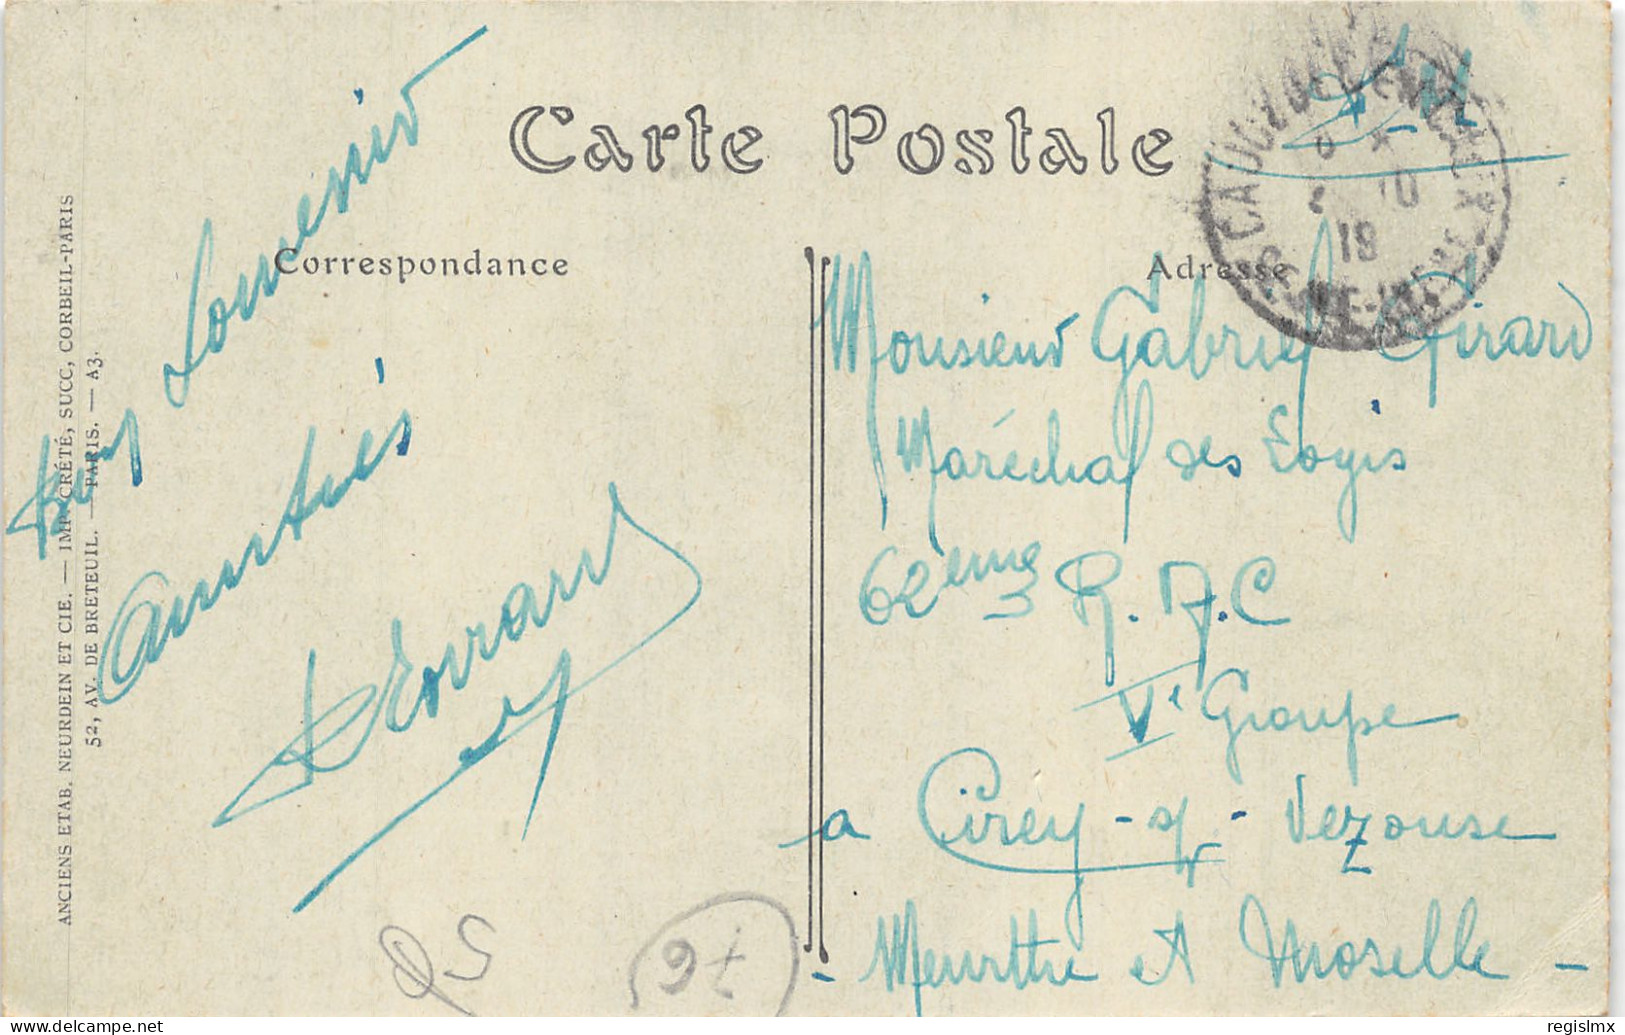 Carte Postale
Correspondance
Adresse
F. M.
CAUDEBEC-EN-CAUX
19
ANCIENS ETAB. NEURDEIN ET CIE. — IMP. CRÉTÉ, SUCC, CORBEIL-PARIS
52, AV. DE BRETEUIL. — PARIS. — A3.
Bon Souvenir
Amitiés
Monsieur Gabriel Girard
Maréchal des Logis
62ème R.A.C
Vᵉ Groupe
a Cirey-s/-Vezouse
- Meurthe et Moselle -
76
delcampe.net
regislmx